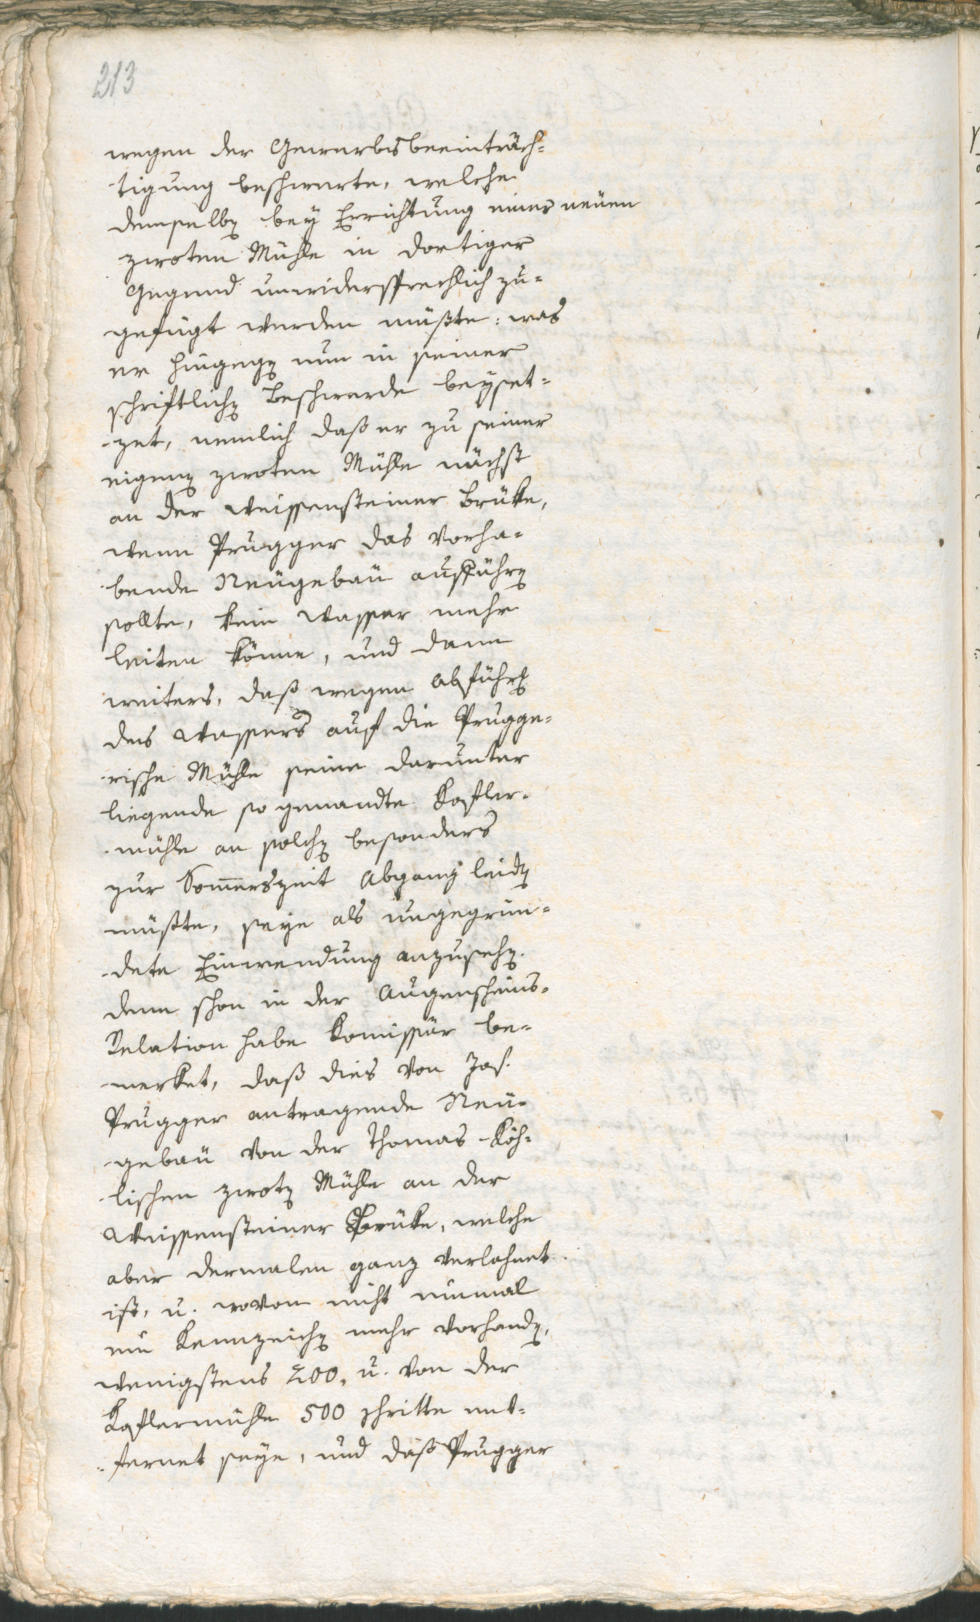 213
wegen der Gewerbsbeeinträch=
tigung beschwerte, welche
demselben bey Errichtung einer neüen
zwoten Mühle in dortiger
Gegend unwidersprechlich zu=
gefügt werden müßte: was
er hingegen nun in seiner
schriftlichen Beschwerde beyset=
zet, nemlich daß er zu seiner
eigenen zwoten Mühle nächst
an der Weissensteiner Brüke,
wenn Prugger das vorha=
bende Neügebaü ausführen
sollte, kein Wasser mehr
leiten könne, und dann
weiters, daß wegen Abführung
des Wassers auf die Prugge=
rische Mühle seine darunter
liegende so genandte Kofler=
mühle an solchen besonders
zur Som̅erszeit Abgang leiden
müßte, seye als ungegrün=
dete Einwendung anzusehen.
denn schon in der Augenscheins=
Relation habe Komissär be=
merket, daß dies von Jos.
Prugger antragende Neü=
gebaü von der Thomas Köh=
lischen zwoten Mühle an der
Weissensteiner Brüke, welche
aber dermalen ganz verlahnet
ist, u. wovon nicht einmal
ein Kennzeichen mehr vorhanden,
wenigstens 200, u. von der
Koflermühle 500 schritte ent=
fernet seye, und daß Prugger